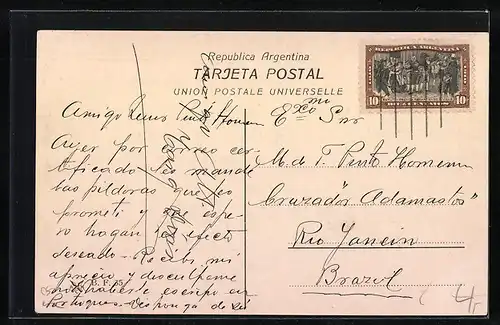 Republica Argentina
TARJETA POSTAL
UNION POSTALE UNIVERSELLE
REPUBLICA ARGENTINA
10 10
Amigo Pinto Homem
Ayer por correo cer-
tificado les mandé
las píldoras que le
prometí y que espe-
ro hagan el efecto
deseado - Recibe mi
aprecio y disculpeme
en
Portugues -
B. F. 35
Exmo Snr
M. de T. Pinto Homem
Cruzador "Adamastor"
Rio Janeiro
Brazil
4.